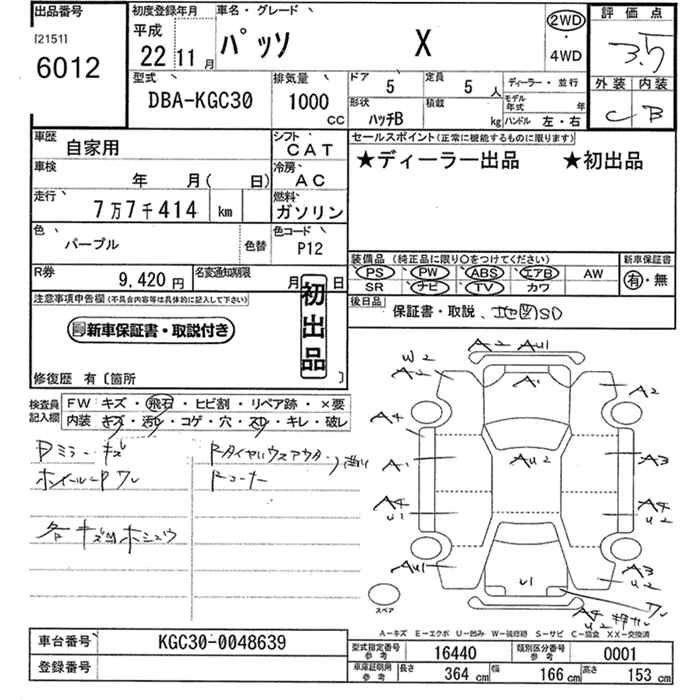 出品番号
[21511
6012
初度登録年月
平成
22 11 月
車名・グレード
パッソ X
2WD
・
4WD
評価点
3.5
外装 内装
C B
型式
DBA-KGC30
排気量
1000
CC
ドア 5
定員 5 人
形状 ハッチB
積載 kg
ディーラー・並行
モデル年式 年
ハンドル 左・右
車歴 自家用
シフト CAT
車検 年 月( 日)
冷房 AC
走行 7万7千414 km
燃料 ガソリン
色 パープル 色替
色コード P12
R券 9,420 円
名変通知期限 月 日
セールスポイント(正常に機能するものに限ります)
★ディーラー出品 ★初出品
装備品 (純正品に限り○をつけてください)
PS PW ABS エアB AW
SR ナビ TV カワ
新車保証書
有・無
後日品 保証書・取説、地図SD
注意事項申告欄(不具合内容等は具体的に記入して下さい)
新車保証書・取説付き
初出品
修復歴 有〔箇所 〕
検査員記入欄
FW キズ・飛石・ヒビ割・リペア跡・×要
内装 キズ・汚れ・コゲ・穴・スレ・キレ・破レ
Pミラーキズ
ホイールーP ワレ
各キズ凹ホシュウ
Rコーナー
W2
A2
A2 AU1
A1
A2
A4
A1
AU2
A3
A4
U1
A4
U2
AU1
U1
A3
U2
ワレ
A4
U2
スペア
A-キズ E-エクボ U-凹み W-波修跡 S-サビ C-腐食 XX-交換済
車台番号 KGC30-0048639
登録番号
型式指定番号 参考 16440
類別区分番号 参考 0001
車庫証明用 参考
長さ 364 cm 幅 166 cm 高さ 153 cm